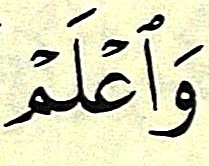 وَٱعْلَمْ